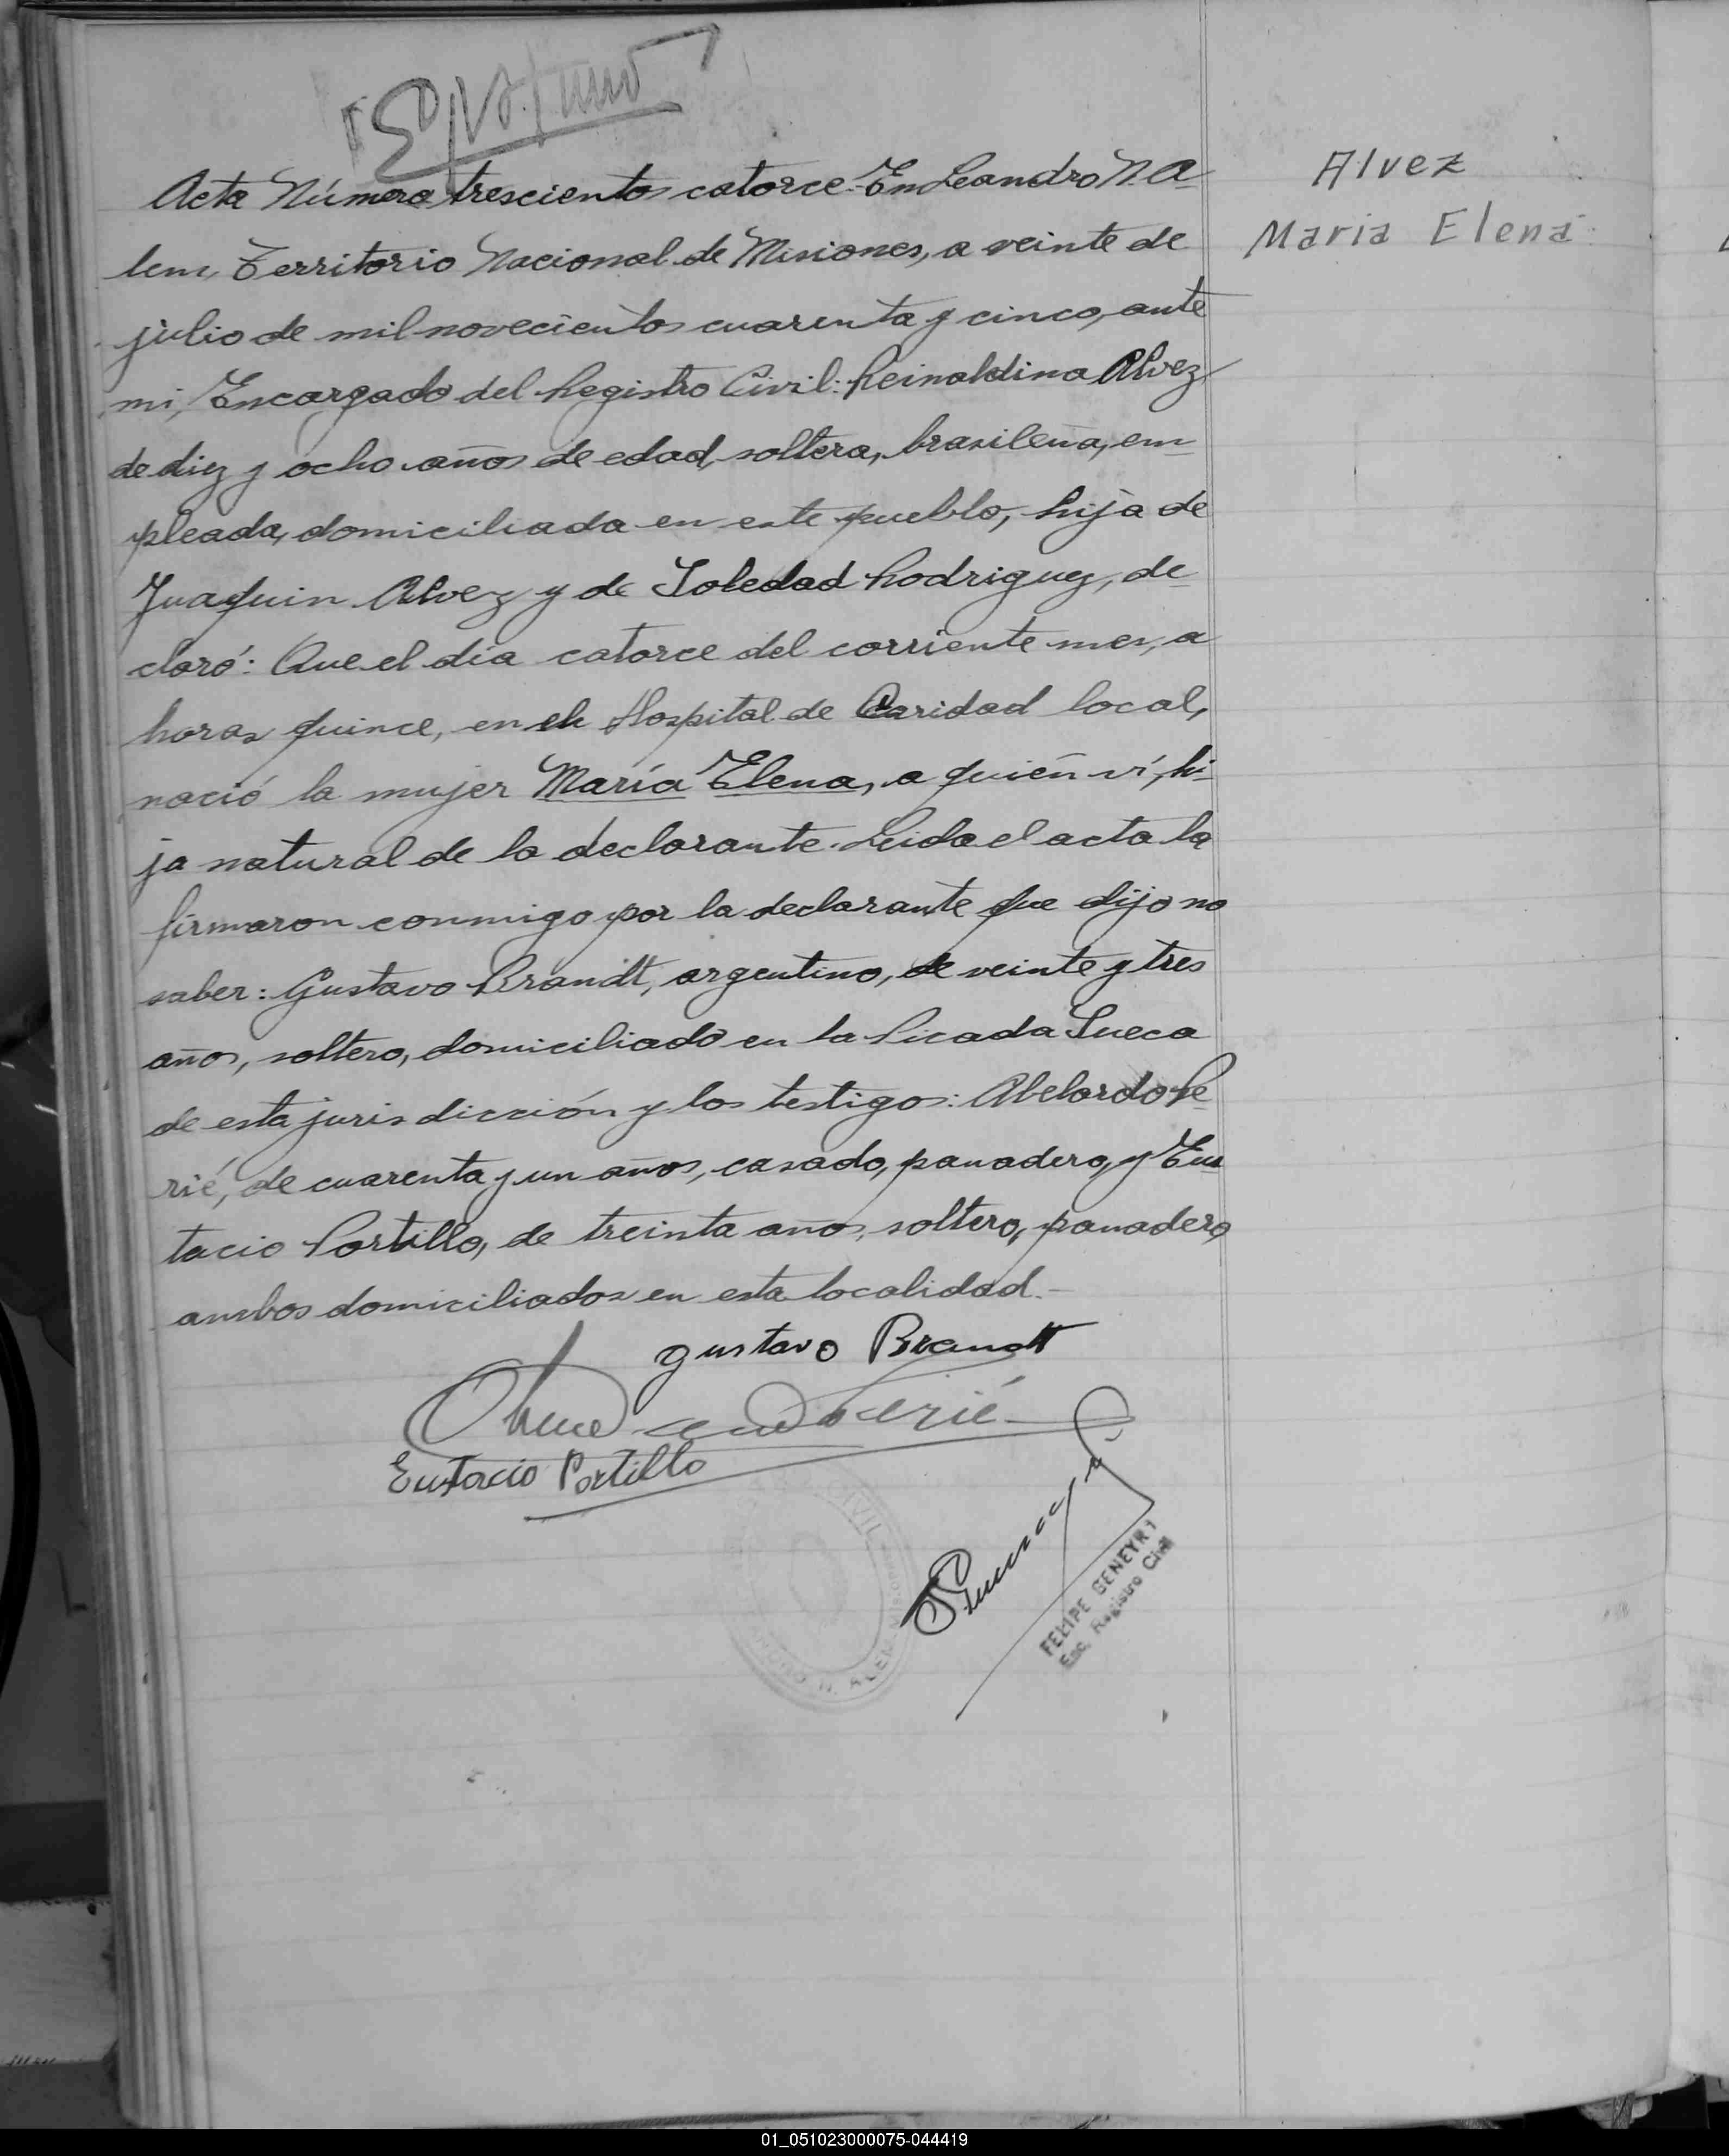 Acta Número tresciento catorce. En Leandro N. A-
lem, Territorio Nacional de Misiones, a veinte de
julio de mil novecientos cuarenta y cinco, ante
mi, Encargado del Registro Civil: Reinaldina Alvez
de diez y ocho años de edad, soltera, brasileña, em-
pleada, domiciliada en este pueblo, hija de
Juaquin Alvez y de Soledad Rodriguez, de-
claró: Que el día catorce del corriente mes, a
horas quince, en el Hospital de Caridad local,
nació la mujer María Elena, a quién ví, hi-
ja natural de la declarante. Leida el acta la
firmaron conmigo por la declarante que dijo no
saber: Gustavo Brandt, argentino, de veinte y tres
años, soltero, domiciliado en la Picada Sueca
de esta jurisdicción y los testigos: Abelardo Pe-
rié, de cuarenta y un años, casado, panadero, y Eus
tacio Portillo, de treinta años, soltero, panadero,
ambos domiciliados en esta localidad.-
Gustavo Brandt
Perié
Eustacio Portillo
CIVIL
N. ALEM
FELIPE GENEYRI
Enc. Registro Civil
Alvez
Maria Elena
01_051023000075-044419